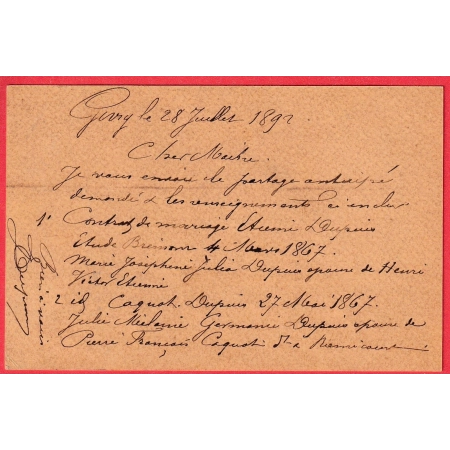 Givry le 28 Juillet 1892
Cher Maître.
Je vous envoie le partage anticipé
demandé & les renseignements ci inclus
1° Contrat de mariage Etienne & Dupuis
Etude 4 Mars 1867.
Marie Joséphine Julia Dupuis épouse de Henri
Victor Etienne
2 id Caquot. Dupuis 27 Mai 1867.
Julie Mélanie Germanie Dupuis épouse de
Pierre François Caquot dt à Remicourt.
Bien à vous